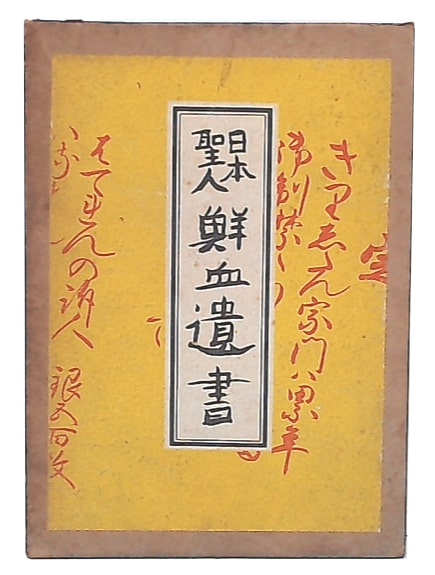 日本
聖人
鮮血遺書
定
きりしたん宗門ハ累年
御制禁
はてれんの訴人 銀五百枚